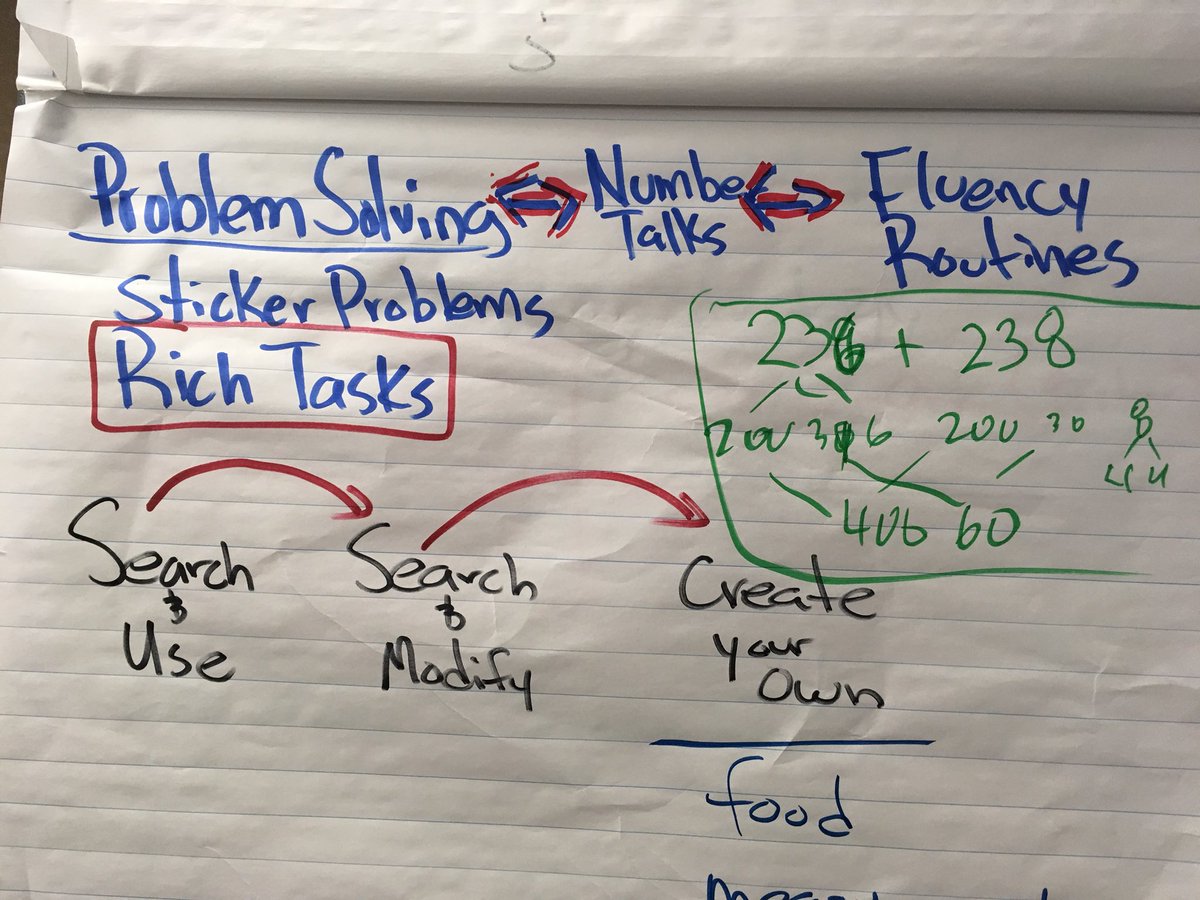 Problem Solving Number Talks Fluency Routines
Sticker Problems
Rich Tasks
236 + 238
200 30 6 200 30 8
4 4
400 60
Search & Use
Search & Modify
Create your own
food